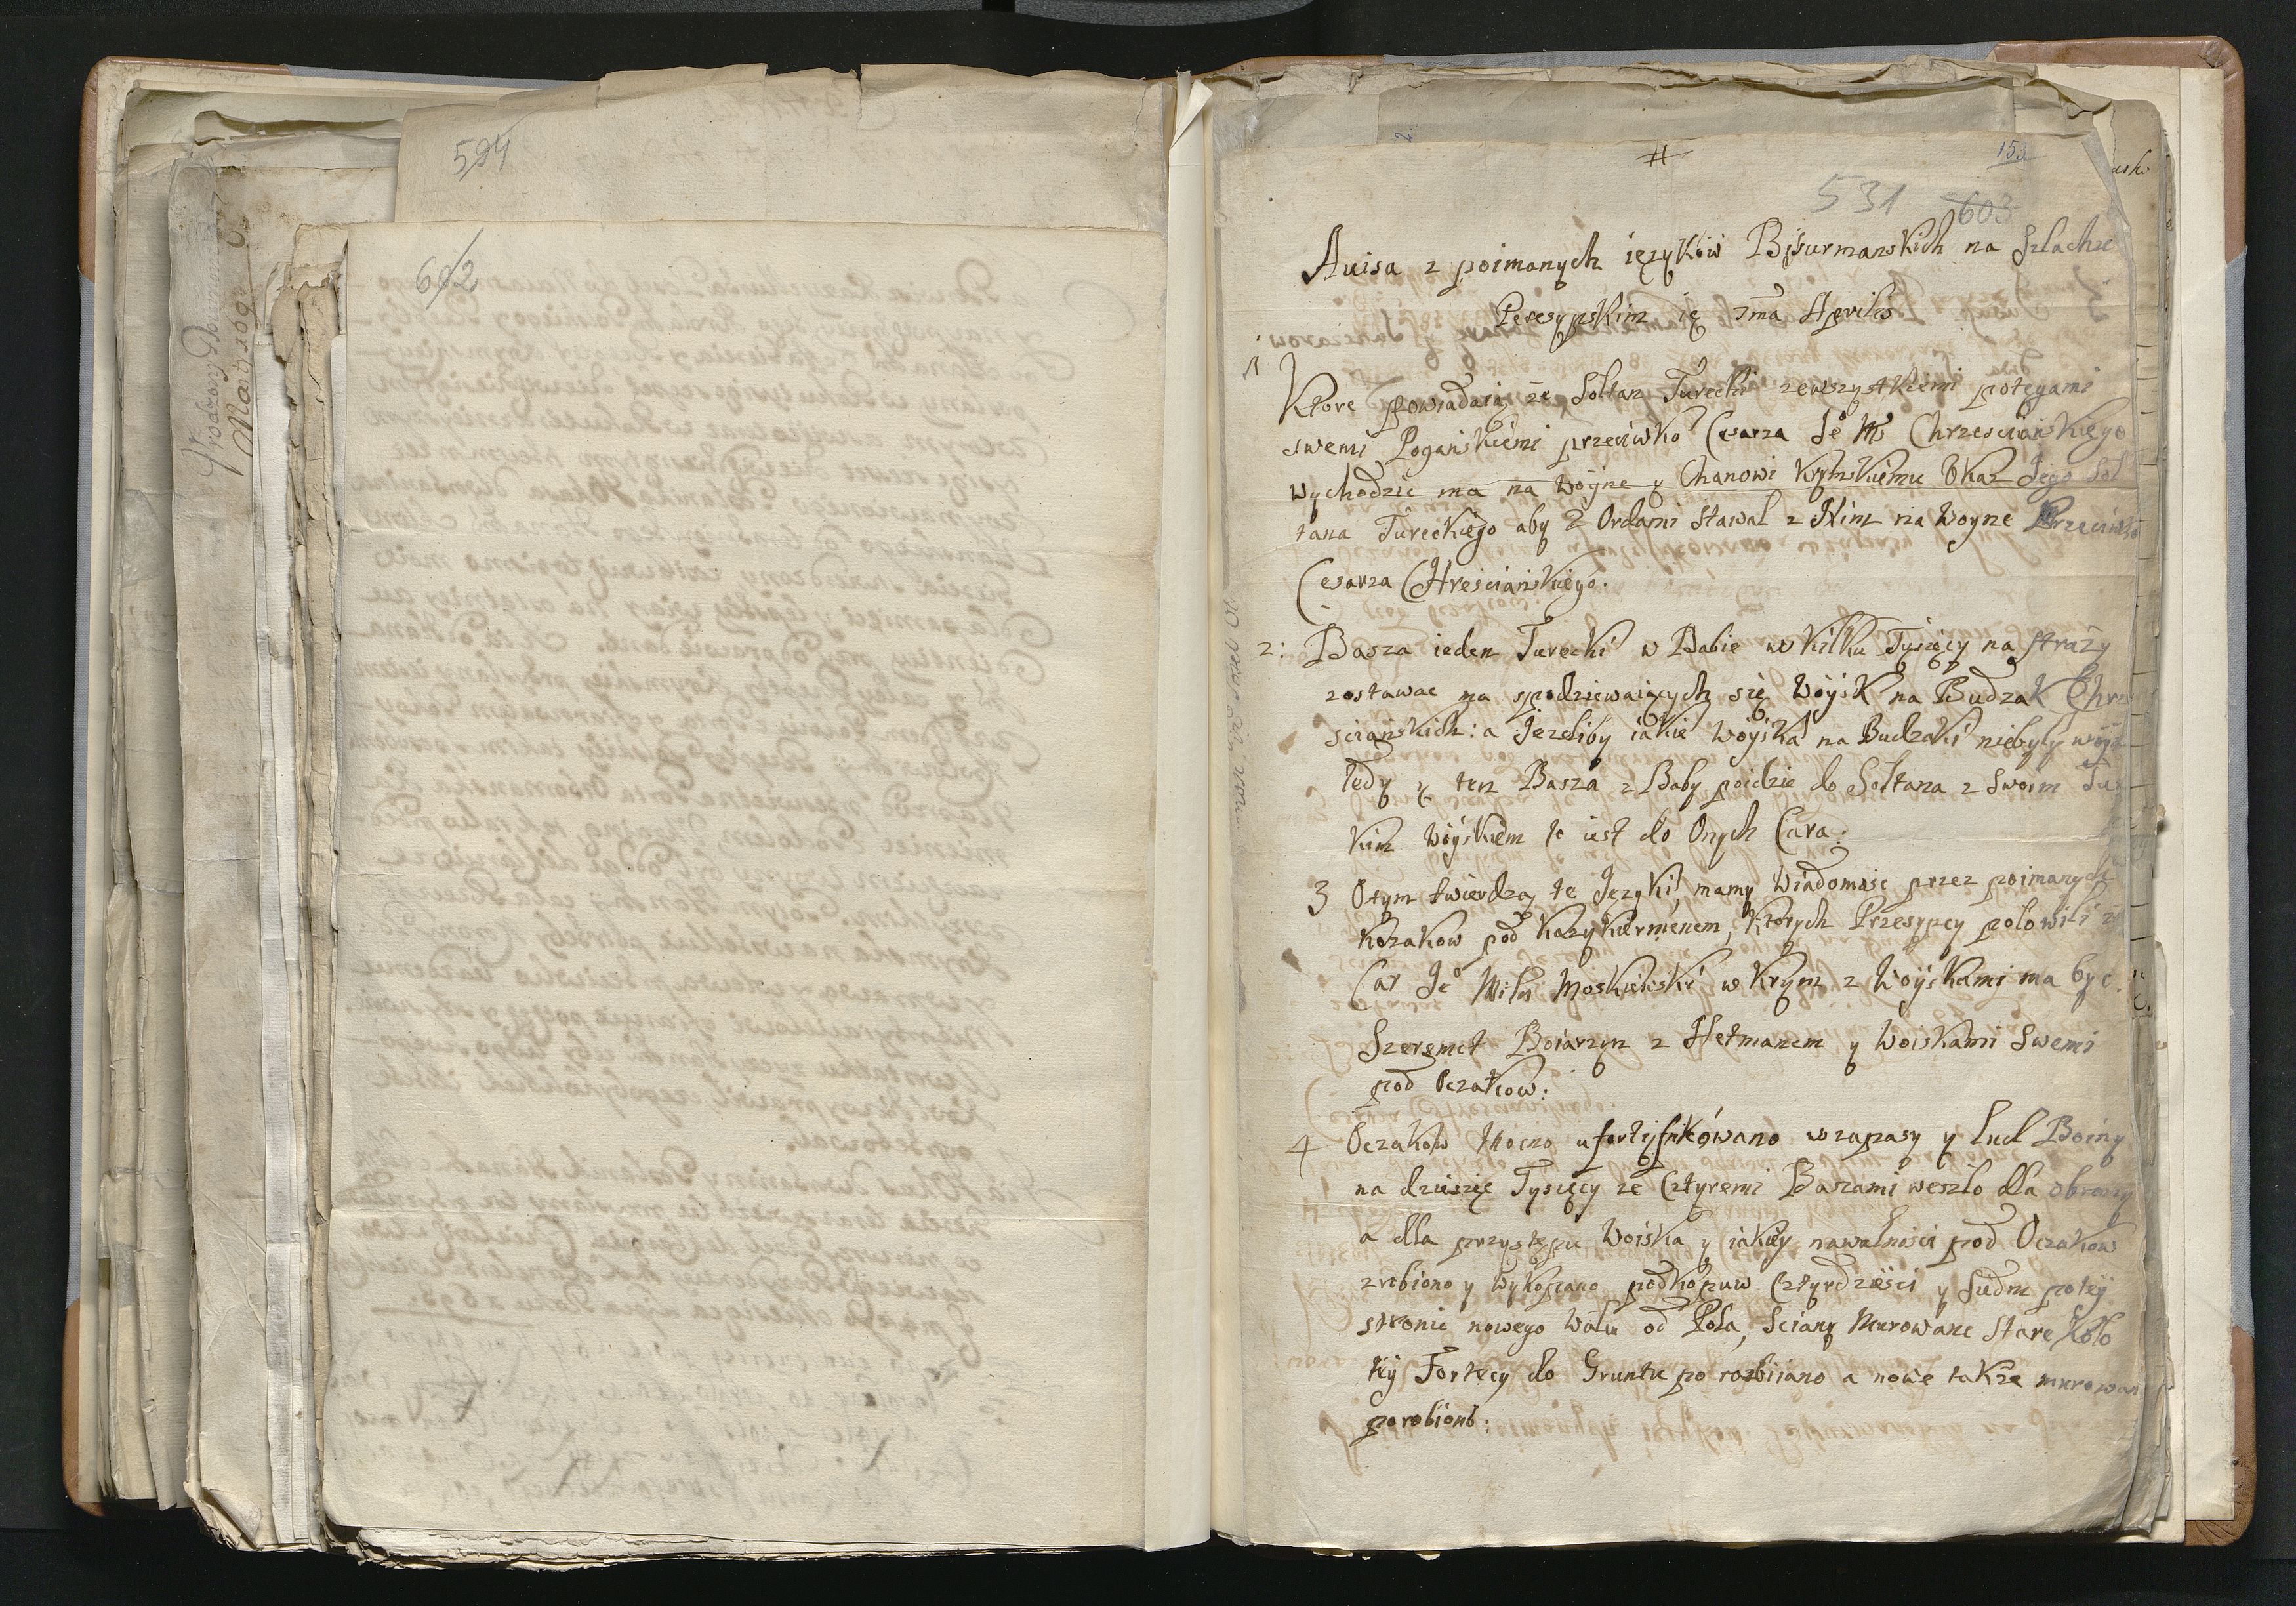 594
602
Wrodzony Dominik
153
531 603
Auisa z poimanych ięzyków Bisurmanskich na Szlachu
Peresypskim ię 7ma Aprilis
1
Ktore powiadaią że Sołtan Turecki zewszystkiemi potęgami
swemi Poganskiemi przeciwko Cesarza Je Ms Chrzescianskiego
wychodzic ma na Woynę y Chanowi Krymskiemu Ukaz Jego Soł
tana Tureckiego aby z Ordami stawał z Nim na Woynę Przeciwko
Cesarza CHrescianskiego.
2: Basza ieden Turecki w Babie w Kilku Tysięcy na straży
zostawac ma spodziewaiących się Woysk na Budzak Chrze
scianskich: a Jezeliby iakie woyska na Budzaki niebyly
tedy y ten Basza z Baby poidzie do Sołtana z Swoim Tur
kim Woyskiem to iest do Onych Cara:
3 Otym twierdzą te Języki, mamy Wiadomosc przez poimanych
Kozakow pod Kazykiermenem, Ktorych Przesypcy połowili
Car Je Miłos Moskiewski w Krym z Woyskami ma byc.
Szeremet Boiarzyn z Hetmanem y Woiskami Swemi
pod Oczakow:
4 Oczakow Mocno ufortyfikowano w zapasy y lud Boiny
na dziesięc Tysięcy ze Cztyremi Baszami weszło dla obrony
a dla przystępu Woiska y iakiey nawałnosci pod Oczakow
zrobiono y wykopano podkopuw Cztyrdziesci y siedm po tey
stronie nowego wału od Pola, Sciany Murowane stare koło
tey Fortecy do Gruntu po rozbiiano a nowe także murowan
porobiono: